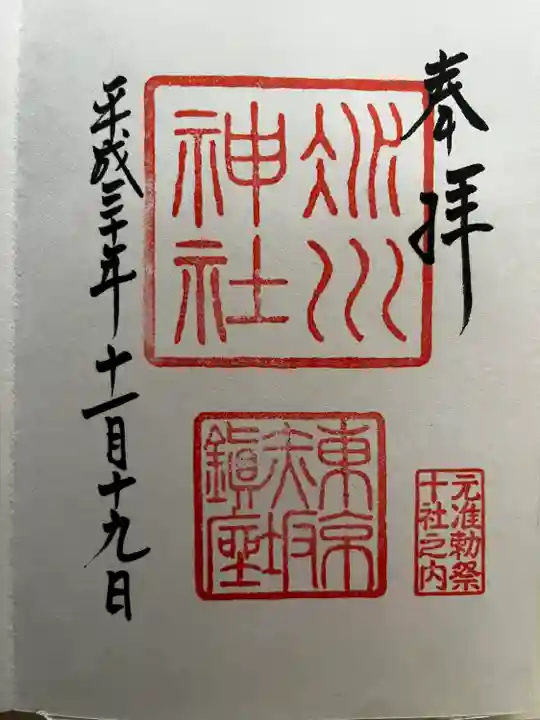 奉拝
氷川
神社
東京
赤坂
鎭座
元准勅祭
十社之内
平成三十年十一月十九日